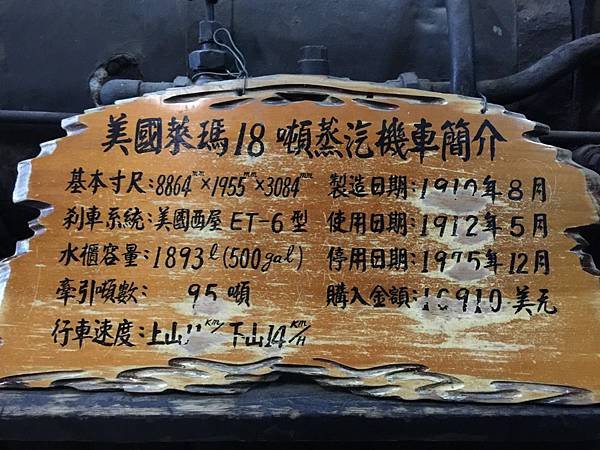 美國萊瑪18噸蒸汽機車簡介
基本寸尺:8864mm×1955mm×3084mm
刹車系統:美國西屋ET-6型
水櫃容量:1893ℓ(500gal)
牽引噸數: 95噸
行車速度:上山 KM/ 下山14KM/H
製造日期:191 年8月
使用日期:1912年5月
停用日期:1975年12月
購入金額: 910美元